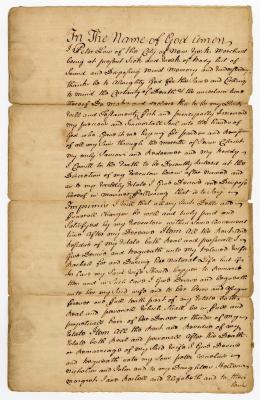 In The Name of God Amen
I Peter Low of the City of New York Merchant
being at present Sick and weak of Body but of
Sound and Disposing mind Memory and understanding
thanks be to Almighty God for the same and Calling
to mind the Certainty of Death & the uncertain time
thereof Do make and declare this to be my last
will and Testament, first and principally I commend
my precious and Immortal Soul into the hands of
God who gave it me hoping for pardon and remission
of all my Sins through the merits of Jesus Christ
my only Saviour and Redeemer and my body
I Commit to the Earth to be Decently Interred at the
Discretion of my Executors hereafter named and
as to my worldly Estate I Give Devise and Dispose
thereof in manner following that is to say
Imprimis I will that all my Just Debts and
Funeral Charges be well and truly paid and
Satisfied by my Executors within some convenient
time after my Decease Item All the Rest and
Residue of my Estate both Real and personal I
Give Devise and bequeath unto my beloved wife
Rachel for and During her natural Life but if
in Case my said wife should happen to Remarry
then and in such case I Give Devise and bequeath
unto her my said wife
one full tenth part of my Estate both
Real and personal which shall be in full and
of her Dower or thirds of my
Estate Item All the Rest and Residue of my
Estate both Real and personal after the Death
or Remarriage of my said wife I Give Devise
and bequeath unto my Sons Peter Cornelius
Nicholas and John and to my Daughters
Margret Jane Rachel and Elizabeth and to their